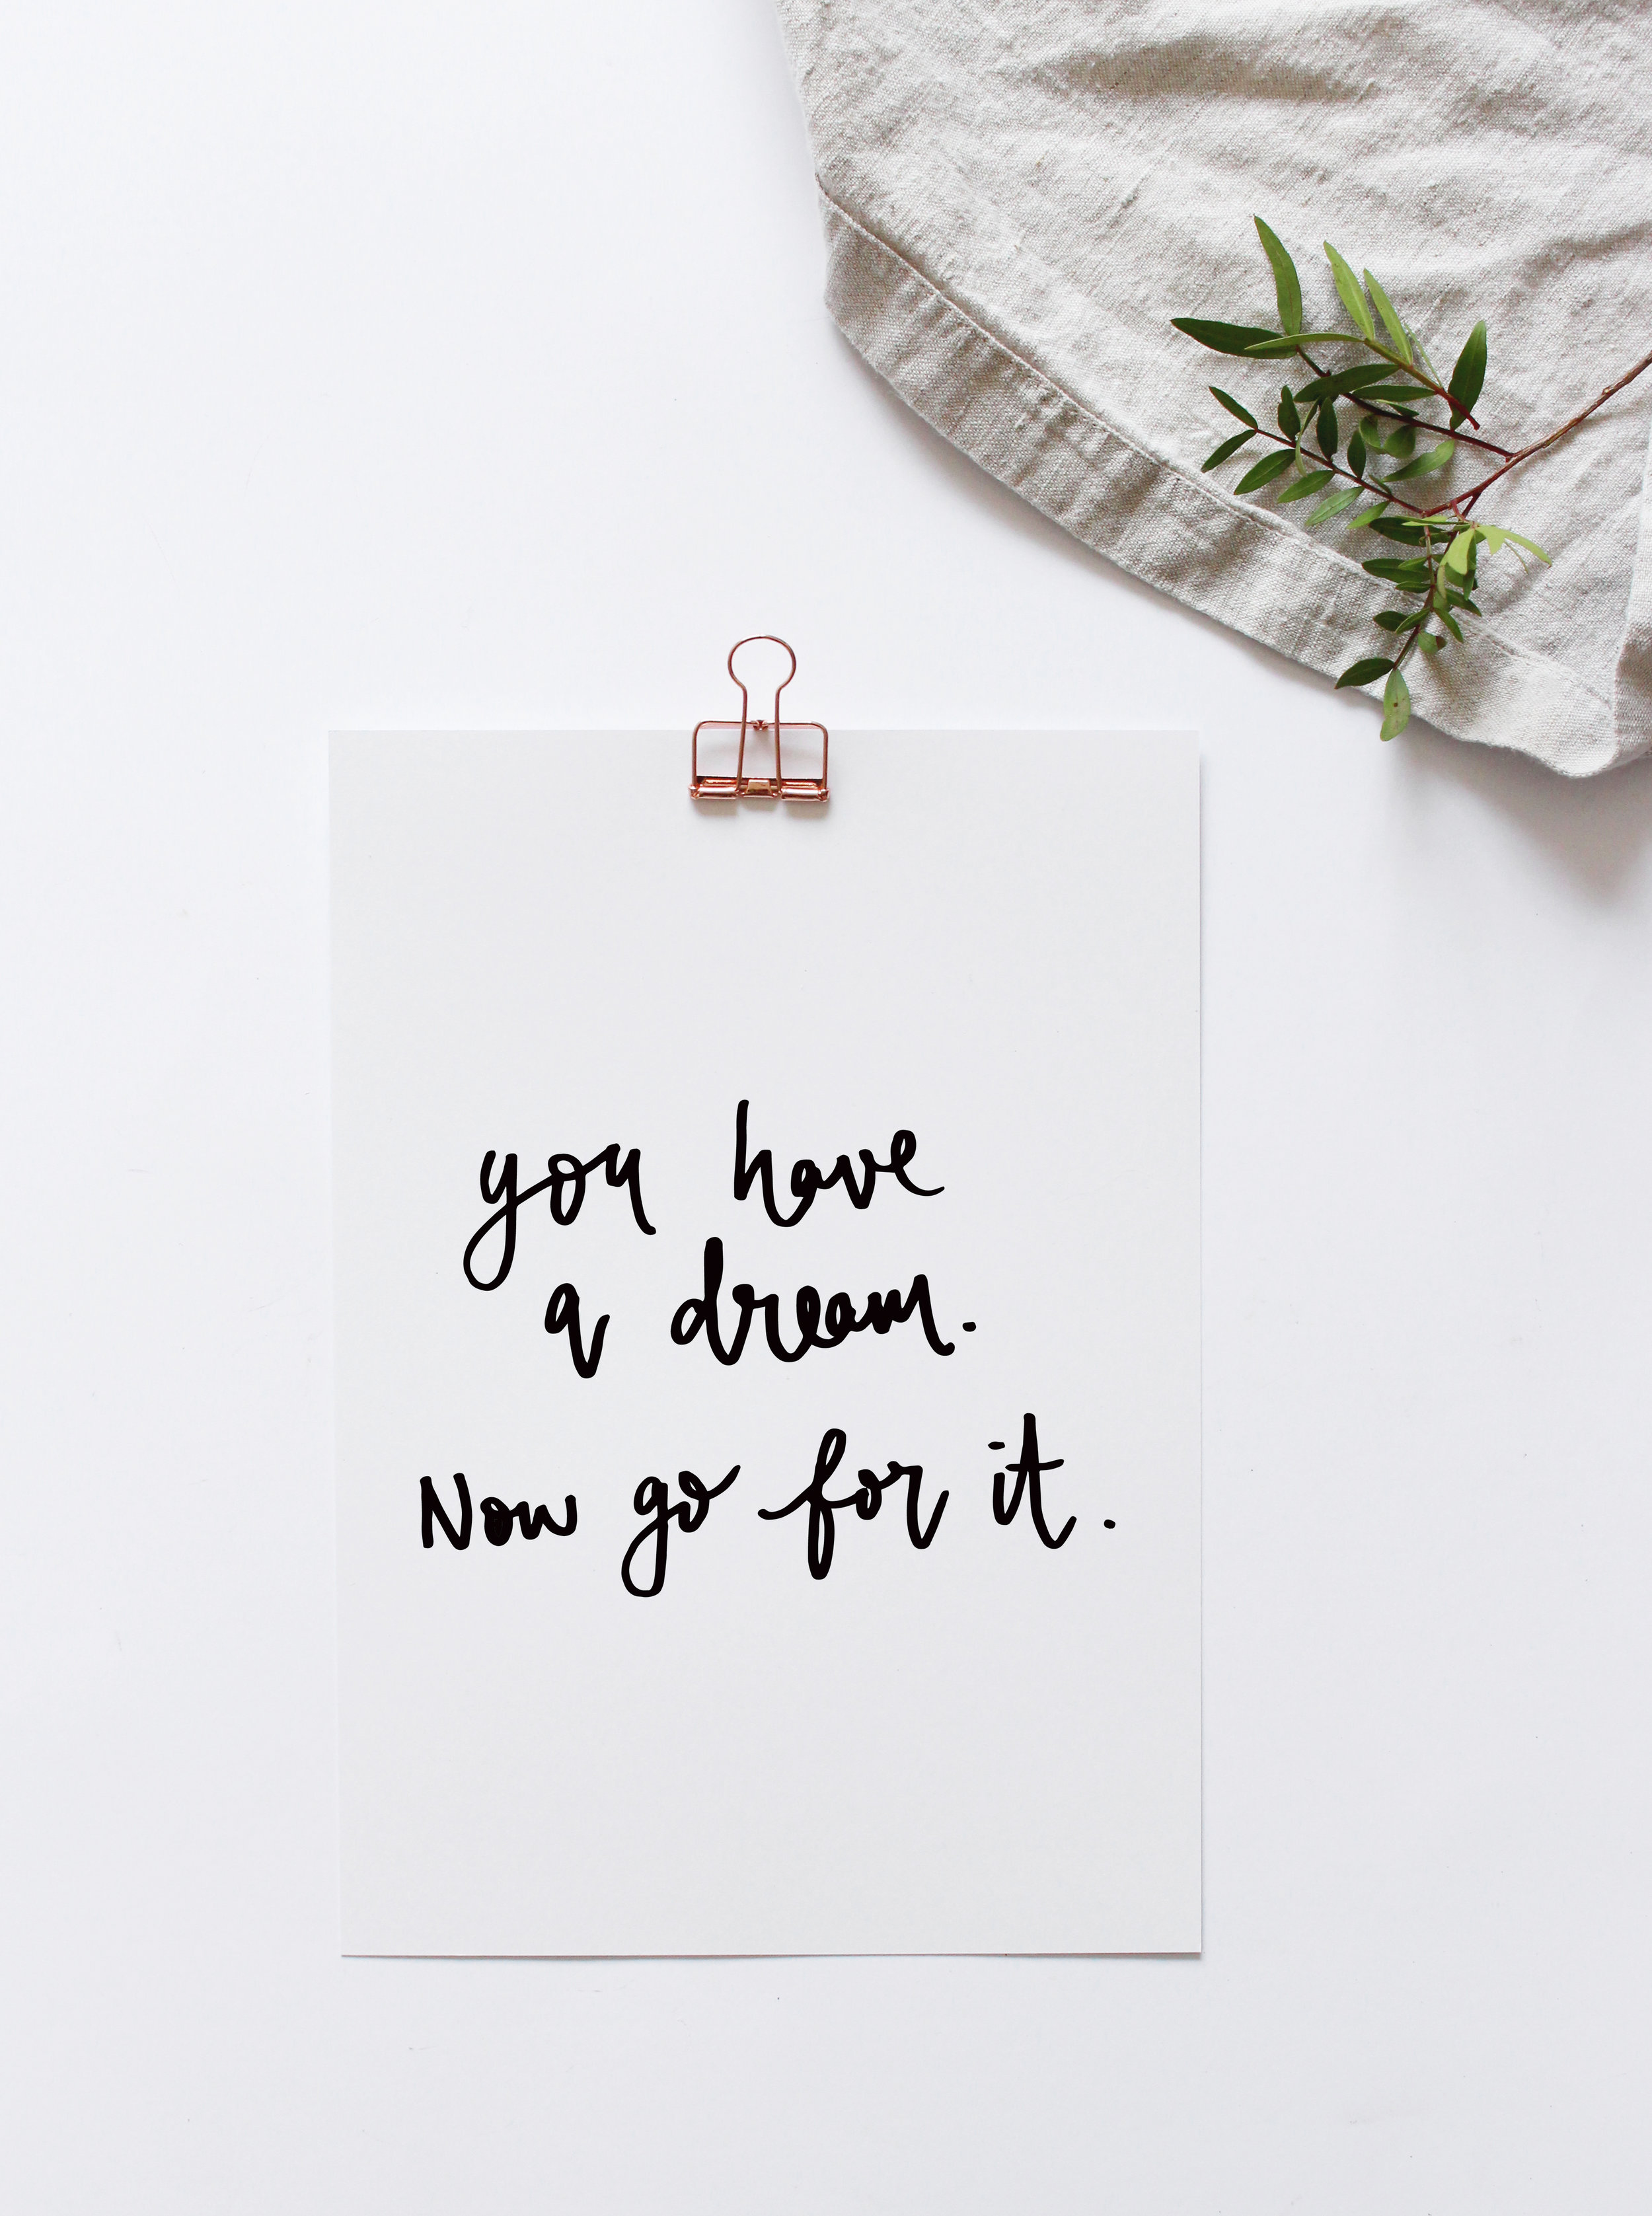 you have
a dream.
Now go for it.